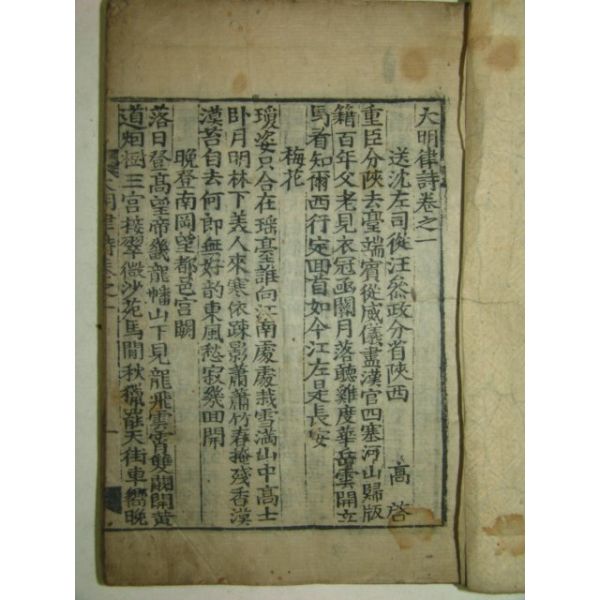 大明律詩卷之一
送沈左司從汪叅政分省陝西 高啓
重臣分陝去臺端賓從威儀盡漢官四塞河山歸版
籍百年父老見衣冠函關月落聽雞度華岳雲開立
馬看知爾西行定回首如今江左是長安
梅花
瓊姿只合在瑤臺誰向江南處處栽雪滿山中高士
卧月明林下美人來寒依疎影蕭蕭竹春掩殘香漠
漠苔自去何郎無好韵東風愁寂幾回開
晚登南岡望都邑宮闕
落日登高望帝畿龍蟠山下見龍飛雲霄雙闕開黃
道烟樹三宮接翠微沙苑馬閒秋獵罷天街車響晚
大明律詩卷之一